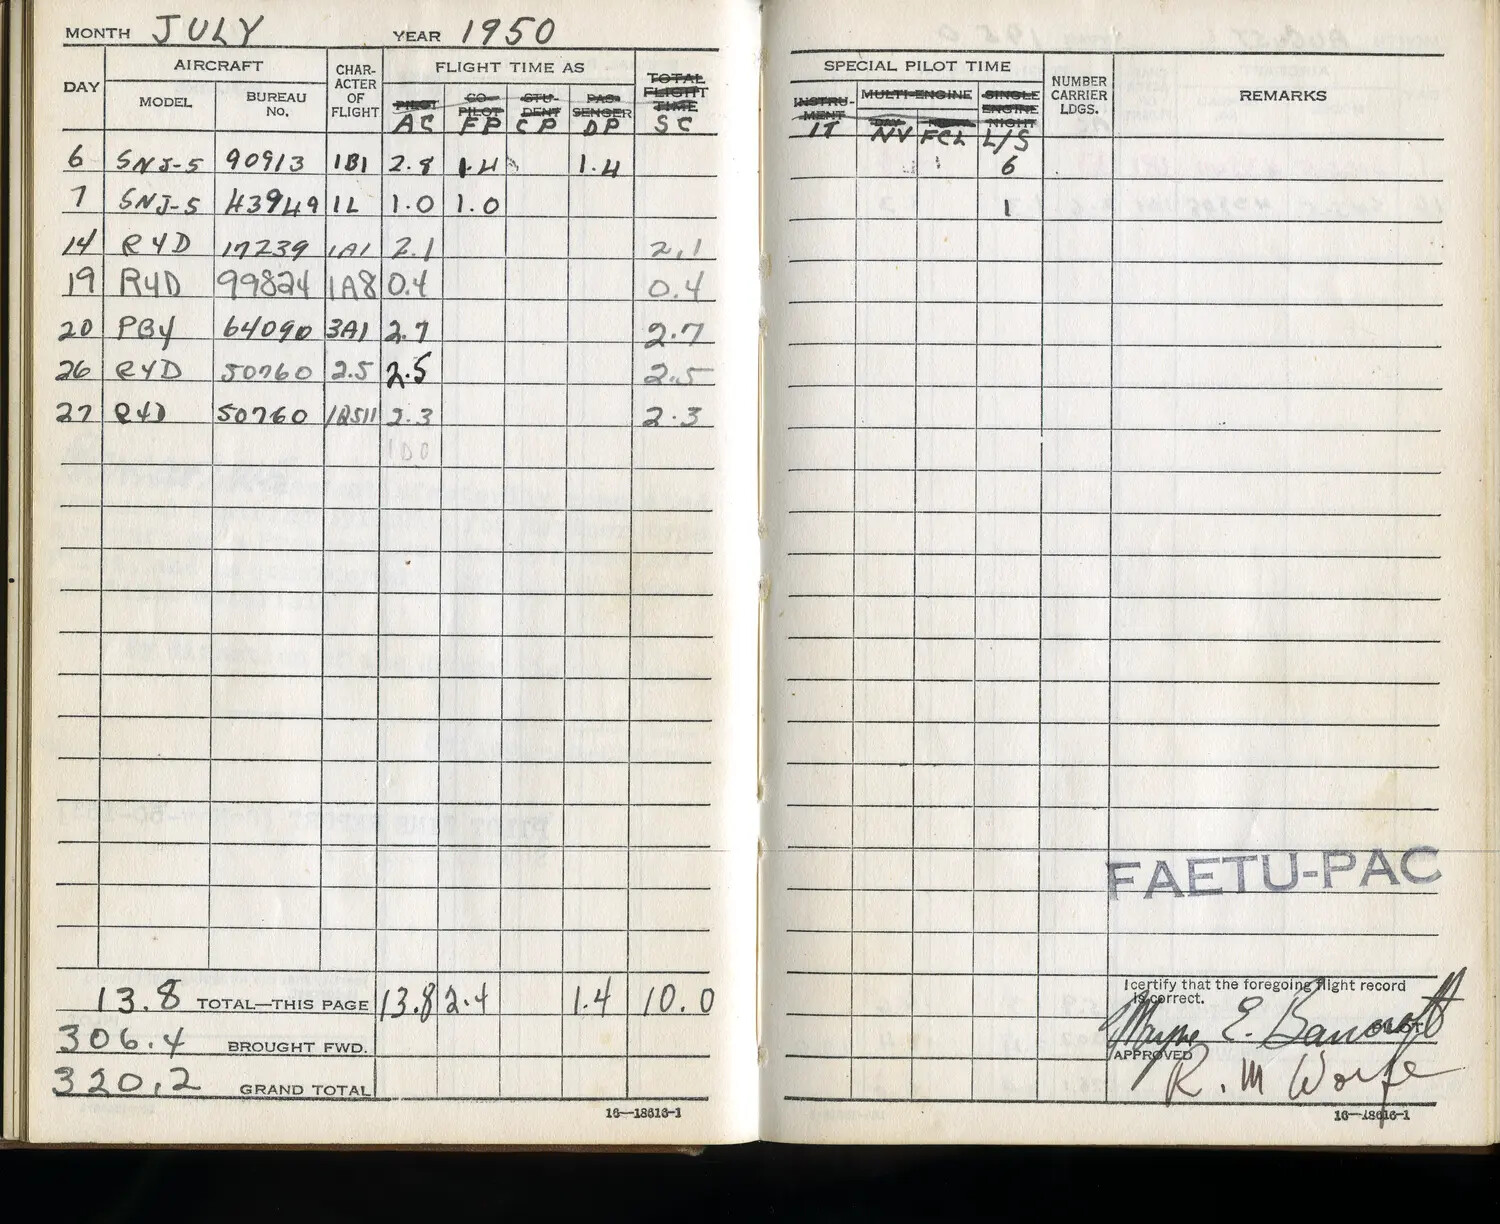 MONTH JULY YEAR 1950
AIRCRAFT FLIGHT TIME AS
DAY MODEL BUREAU NO. CHARACTER OF FLIGHT PILOT CO-PILOT STUDENT PASSENGER TOTAL FLIGHT TIME
AC FP CP DP SC
6 SNJ-5 90913 1B1 2.8 1.4 1.4
7 SNJ-5 43949 1L 1.0 1.0
14 R4D 17239 1A1 2.1 2.1
19 R4D 99824 1A8 0.4 0.4
20 PBY 64090 3A1 2.7 2.7
26 R4D 50760 2.5 2.5 2.5
27 R4D 50760 2.3 2.3
100
13.8 TOTAL—THIS PAGE 13.8 2.4 1.4 10.0
306.4 BROUGHT FWD.
320.2 GRAND TOTAL
16—18616-1
SPECIAL PILOT TIME
INSTRUMENT MULTI-ENGINE DAY SINGLE ENGINE NIGHT NUMBER CARRIER LDGS. REMARKS
IT NV FCL L/S
6
1
FAETU-PAC
I certify that the foregoing flight record
is correct.
Wayne E. Bancroft
PILOT
APPROVED
R. M Worfe
16—18616-1